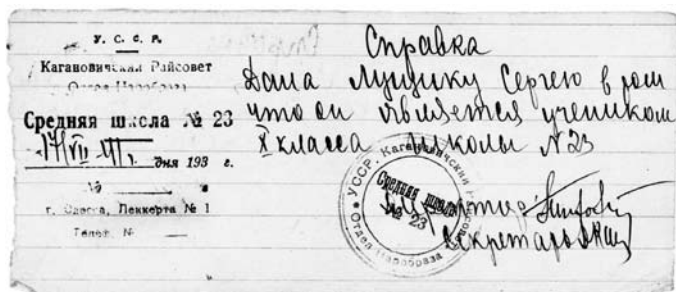 У. С. С. Р.
Кагановичский Райсовет
Отдел Наробраза
Средняя школа № 23
17/VII 41 г. дня 193 г.
№
г. Одесса, Леккерта № 1
Телеф. №
Справка
Дана Лущику Сергею в том
что он является учеником
X класса школы N 23
УССР. Кагановичский
Отдел Наробраза
Средняя школа
№ 23
Директор
Секретарь